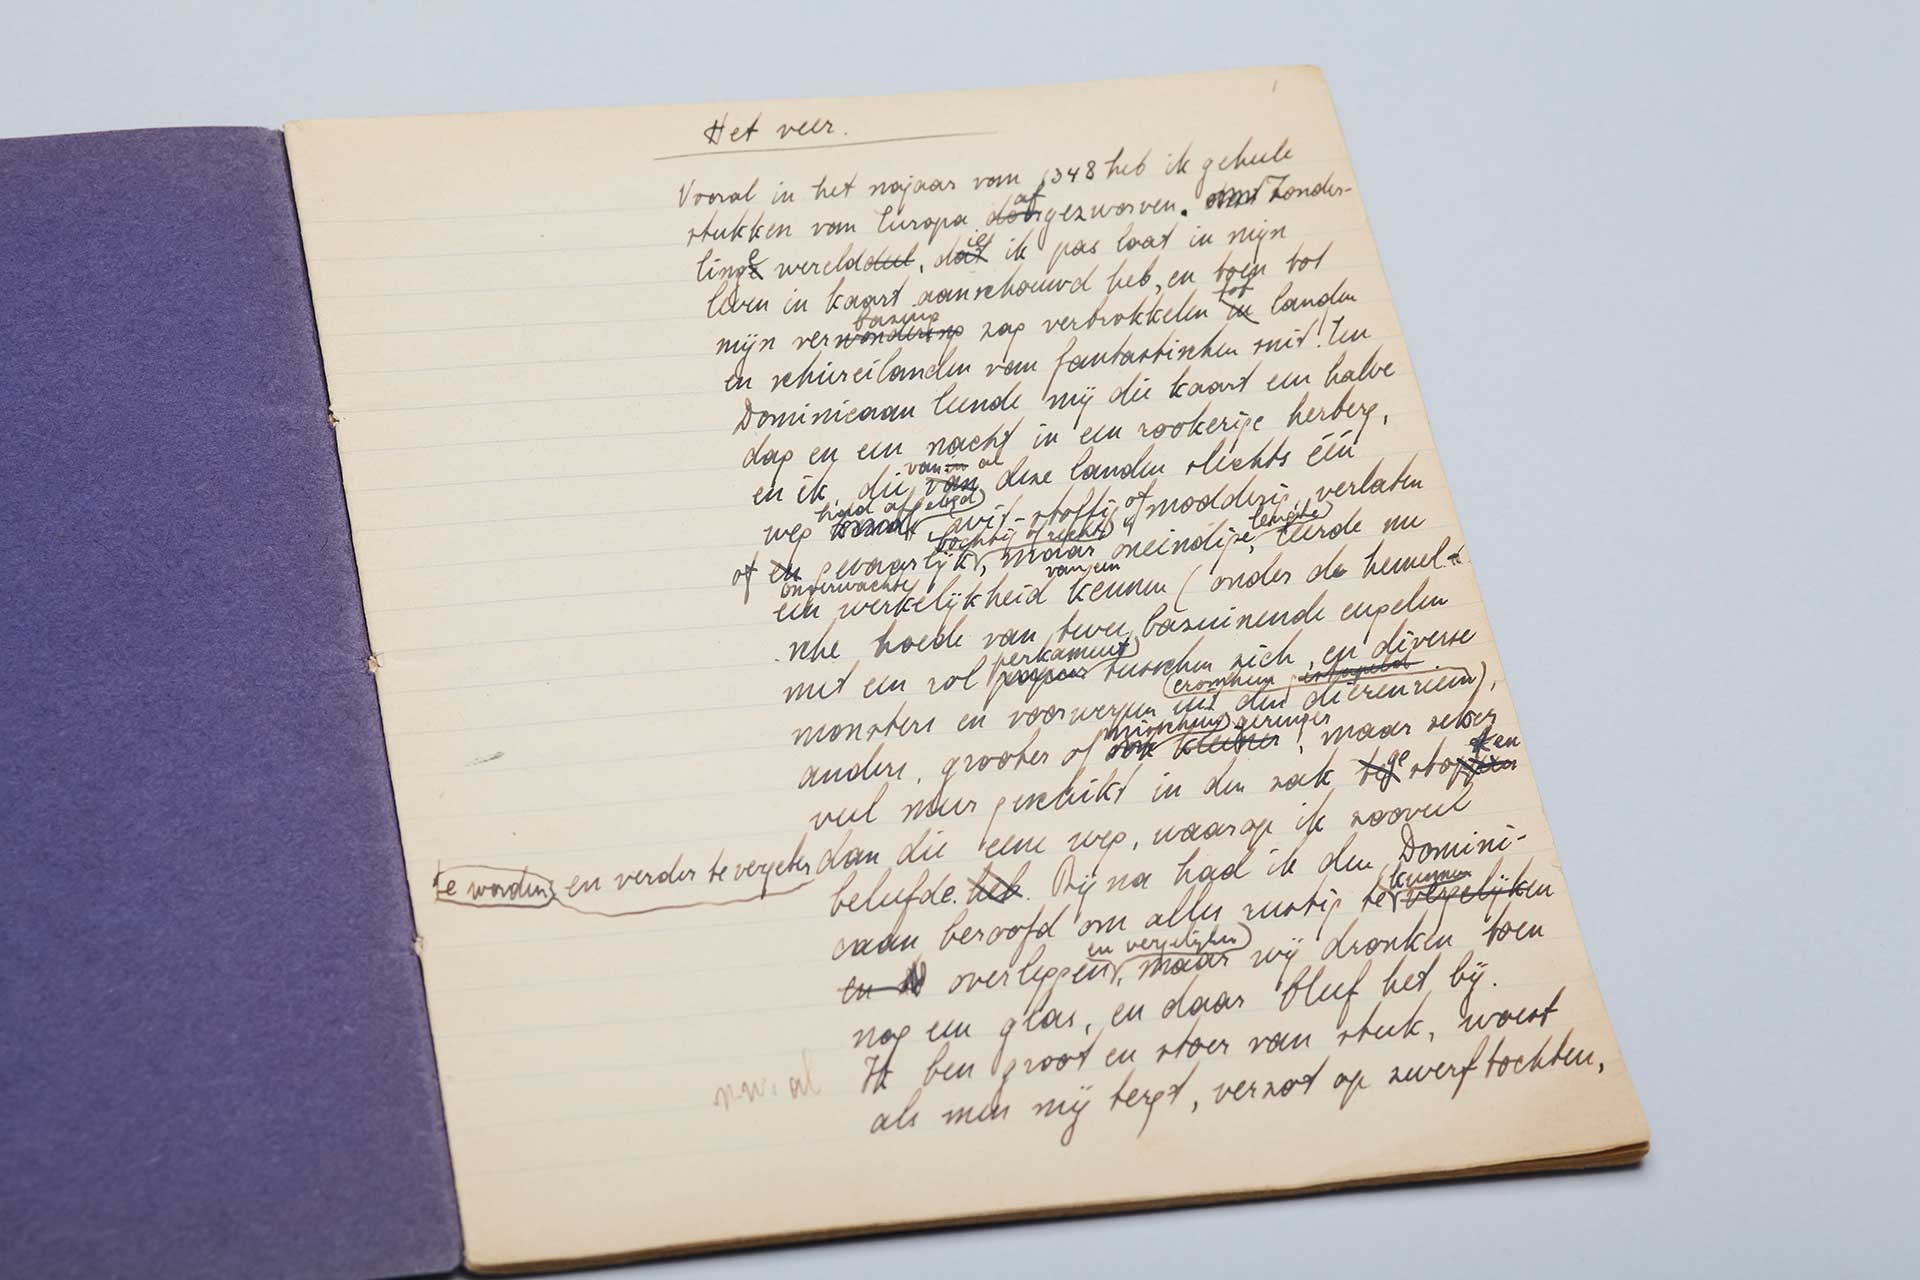 1
Het veer.
Vooral in het najaar van 1348 heb ik geheele
af
stukken van Europa doorgezworven. Zonder-
linge werelddeel, dat ik pas laat in mijn
leven in kaart aanschouwd heb, en toen tot
bazing tot
mijn verwondering zag verbrokkelen in landen
en schiereilanden van fantastischen snit! Een
Dominicaan leende mij die kaart een halve
dag en een nacht in een rookerige herberg,
van al
en ik, die van deze landen slechts één
had afgelegd
weg wit-stoffig of modderig, verlaten
bochtig of recht
of en gevaarlijk, maar oneindige, leerde nu
onverwachte van een
een werkelijkheid kennen (onder de hemel-
sche hoede van twee bazuinende engelen
perkament
met een rol papier tusschen zich, en diverse
eromheen
monsters en voorwerpen uit den dierenriem),
misschien geringer
anders, grooter of ook kleiner, maar zeker
ge ten
veel meer geschikt in den zak te stoppen
te worden, en verder te vergeten dan die eene weg, waarop ik zooveel
beleefde. heb. Bijna had ik den Domini-
kunnen
caan beroofd om alles rustig te vergelijken
en vergelijken
en overleggen, maar wij dronken toen
nog een glas, en daar bleef het bij.
Ik ben groot en stoer van stuk, woest
als men mij tergt, verzot op zwerftochten,